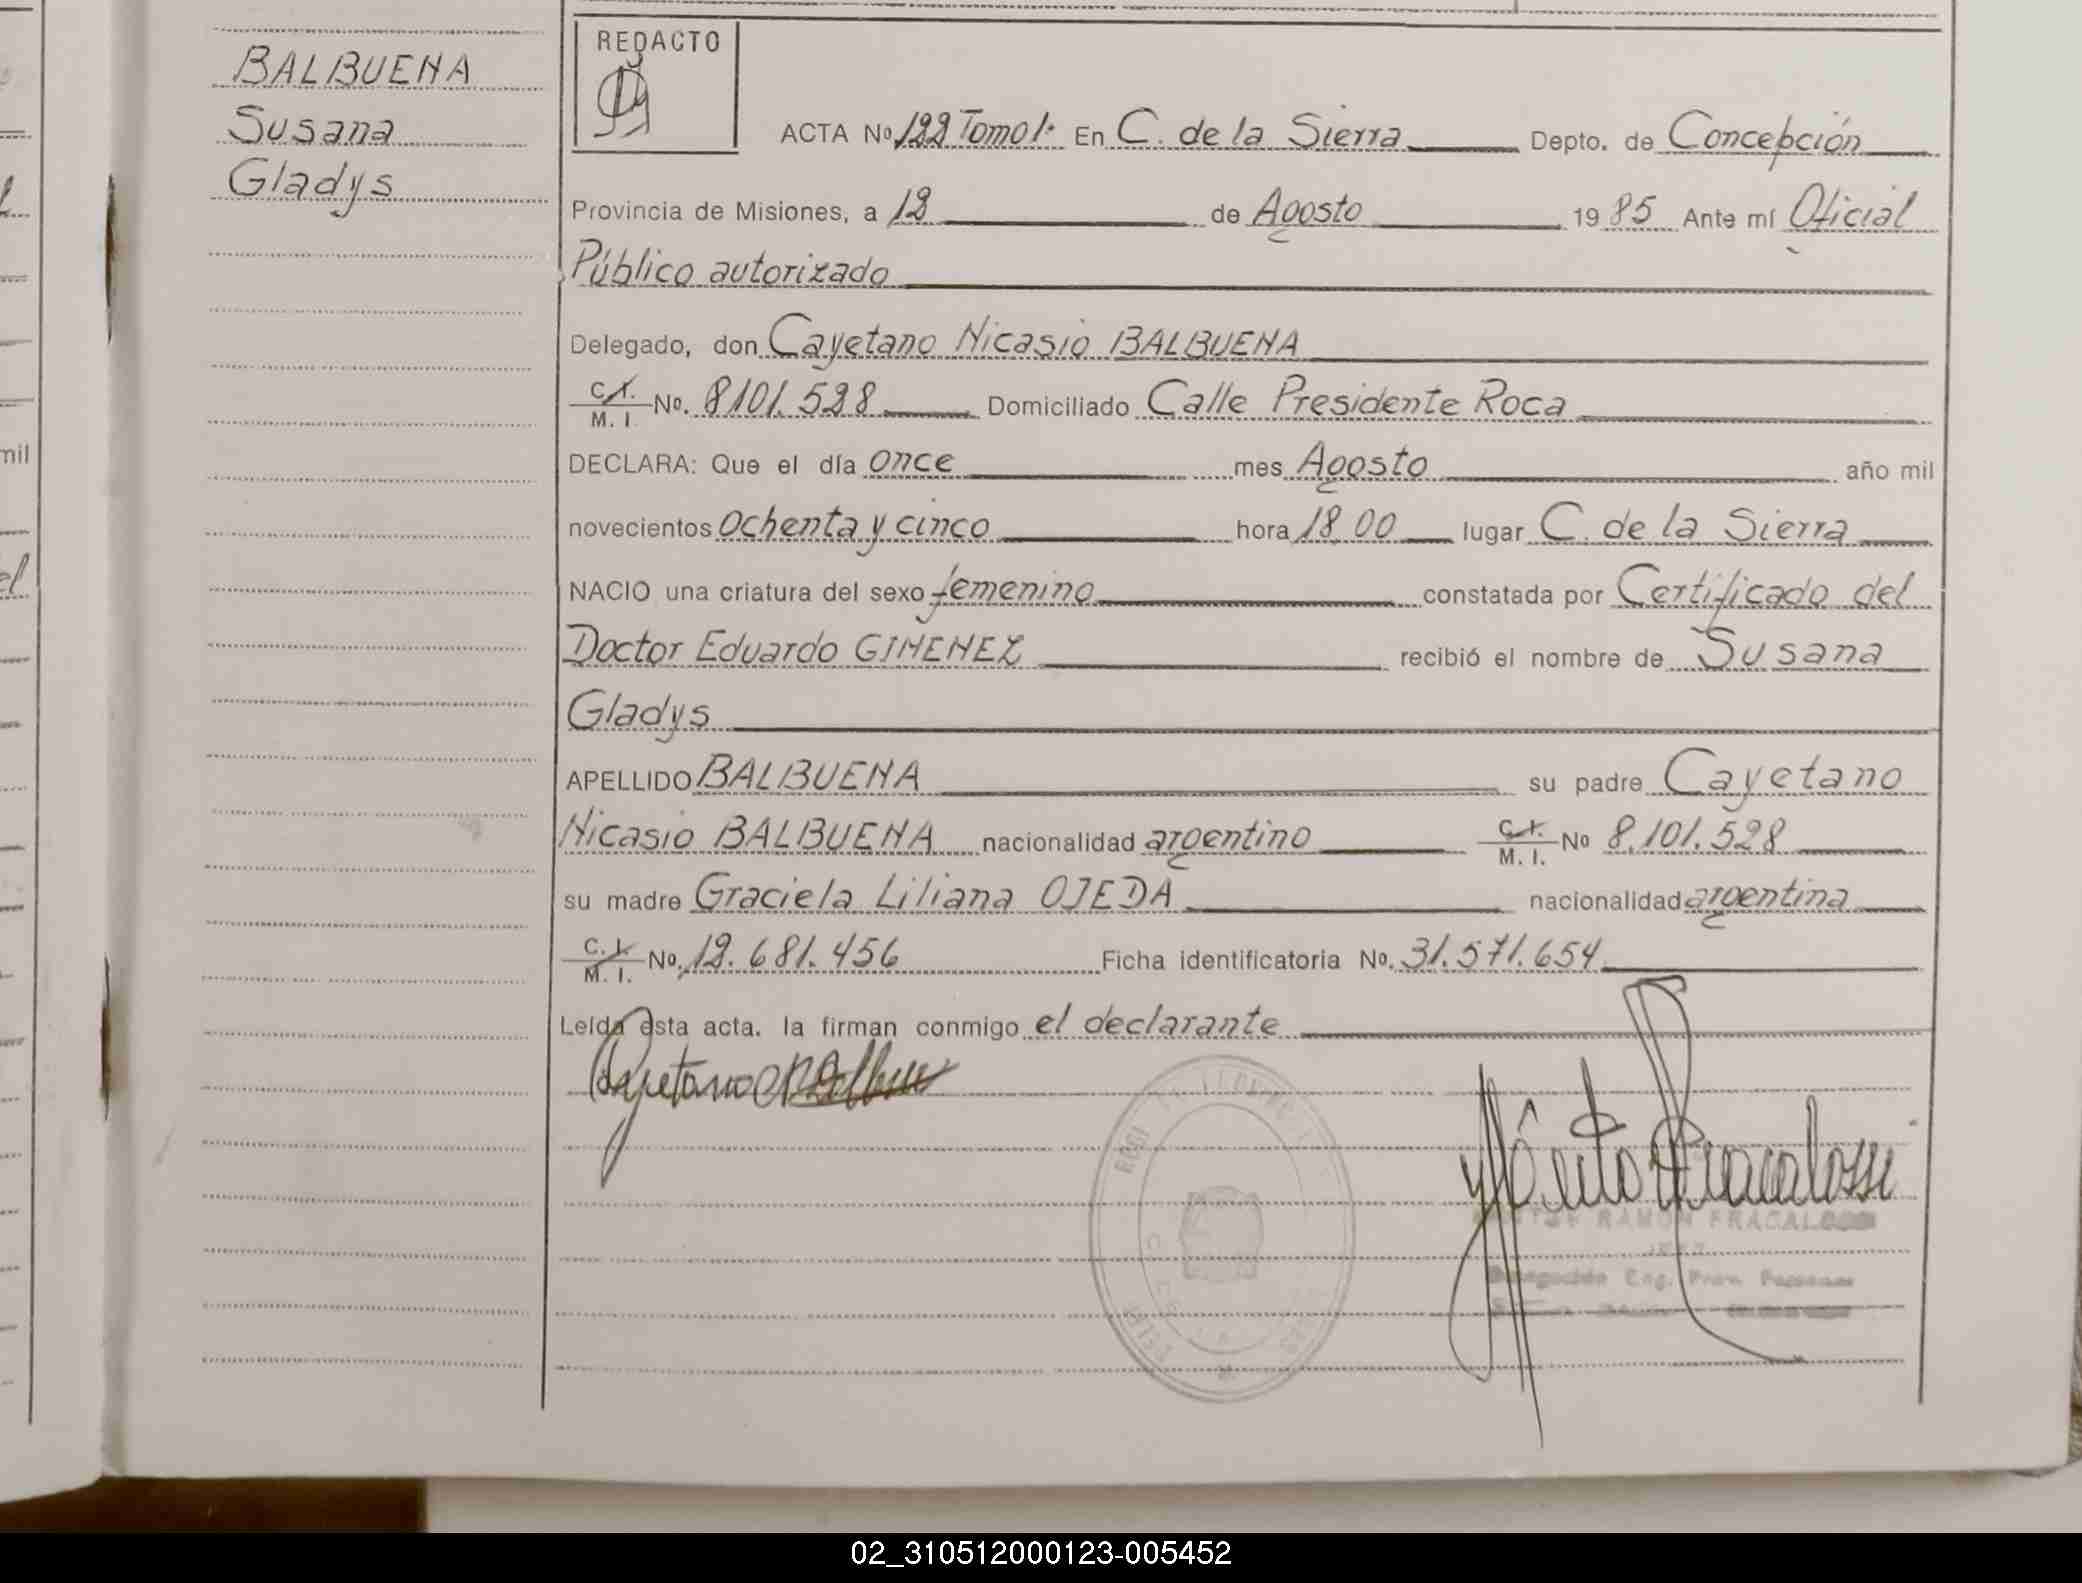 BALBUENA
Susana
Gladys
REDACTO
ACTA Nº 122 Tomo 1· En C. de la Sierra Depto. de Concepción
Provincia de Misiones, a 12 de Agosto 1985 Ante mí Oficial
Público autorizado
Delegado, don Cayetano Nicasio BALBUENA
C.I. M. I. Nº. 8101.528 Domiciliado Calle Presidente Roca
DECLARA: Que el día once mes Agosto año mil
novecientos ochenta y cinco hora 18,00 lugar C. de la Sierra
NACIO una criatura del sexo femenino constatada por Certificado del
Doctor Eduardo GIMENEZ recibió el nombre de Susana
Gladys
APELLIDO BALBUENA su padre Cayetano
Nicasio BALBUENA nacionalidad argentino C.I. M. I. Nº 8.101.528
su madre Graciela Liliana OJEDA nacionalidad argentina
C. I. M. I. Nº. 12.681.456 Ficha identificatoria Nº. 31.571.654
Leída esta acta. la firman conmigo el declarante
Cayetano N Balbuena
RAMON FRACALOSSI
mil
el
02_310512000123-005452